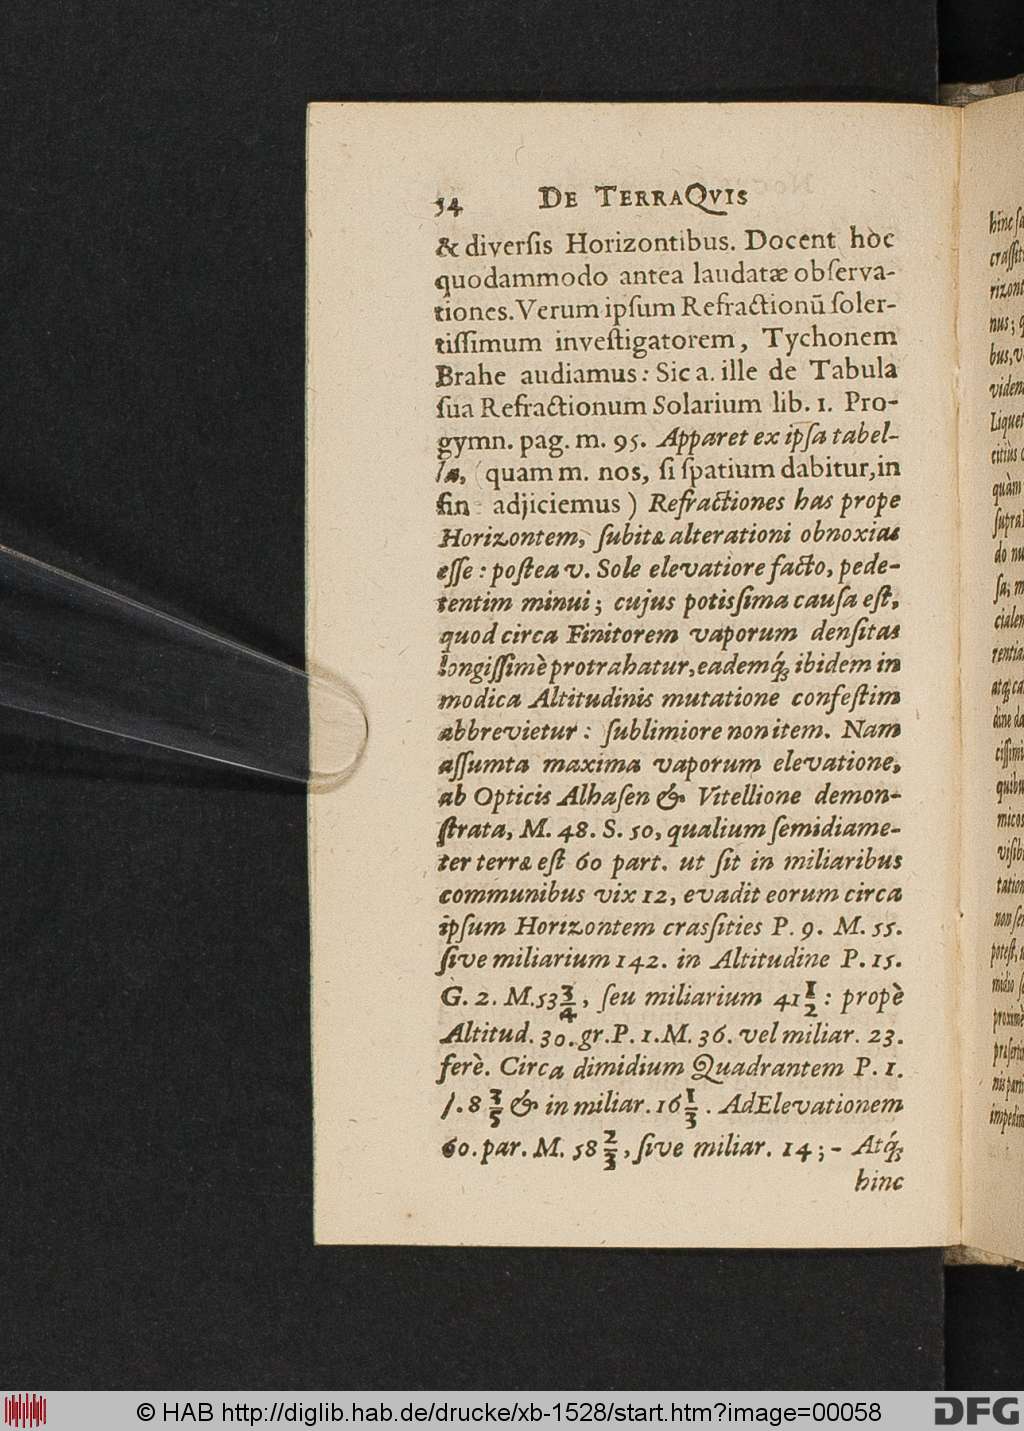 34 DE TERRAQVIS
& diverſis Horizontibus. Docent hoc
quodammodo antea laudatæ obſerva-
tiones. Verum ipſum Refractionū ſoler-
tiſſimum inveſtigatorem, Tychonem
Brahe audiamus: Sic a. ille de Tabula
ſua Refractionum Solarium lib. 1. Pro-
gymn. pag. m. 95. Apparet ex ipſa tabel-
la, (quam m. nos, ſi ſpatium dabitur, in
fin adjiciemus) Refractiones has prope
Horizontem, ſubitæ alterationi obnoxias
eſſe: poſtea v. Sole elevatiore facto, pede-
tentim minui; cujus potisſima cauſa eſt,
quod circa Finitorem vaporum denſitas
longiſſimè protrahatur, eademq́; ibidem in
modica Altitudinis mutatione confeſtim
abbrevietur: ſublimiore non item. Nam
aſſumta maxima vaporum elevatione,
ab Opticis Alhaſen & Vitellione demon-
ſtrata, M. 48. S. 50, qualium ſemidiame-
ter terræ eſt 60 part. ut ſit in miliaribus
communibus vix 12, evadit eorum circa
ipſum Horizontem crasſities P. 9. M. 55.
ſive miliarium 142. in Altitudine P. 15.
G. 2. M. 53 3/4, ſeu miliarium 41 1/2: propè
Altitud. 30. gr. P. 1. M. 36. vel miliar. 23.
ferè. Circa dimidium Quadrantem P. 1.
8 3/5 & in miliar. 16 1/3. Ad Elevationem
60. par. M. 58 2/3, ſive miliar. 14; - Atq́;
hinc
© HAB http://diglib.hab.de/drucke/xb-1528/start.htm?image=00058
DFG